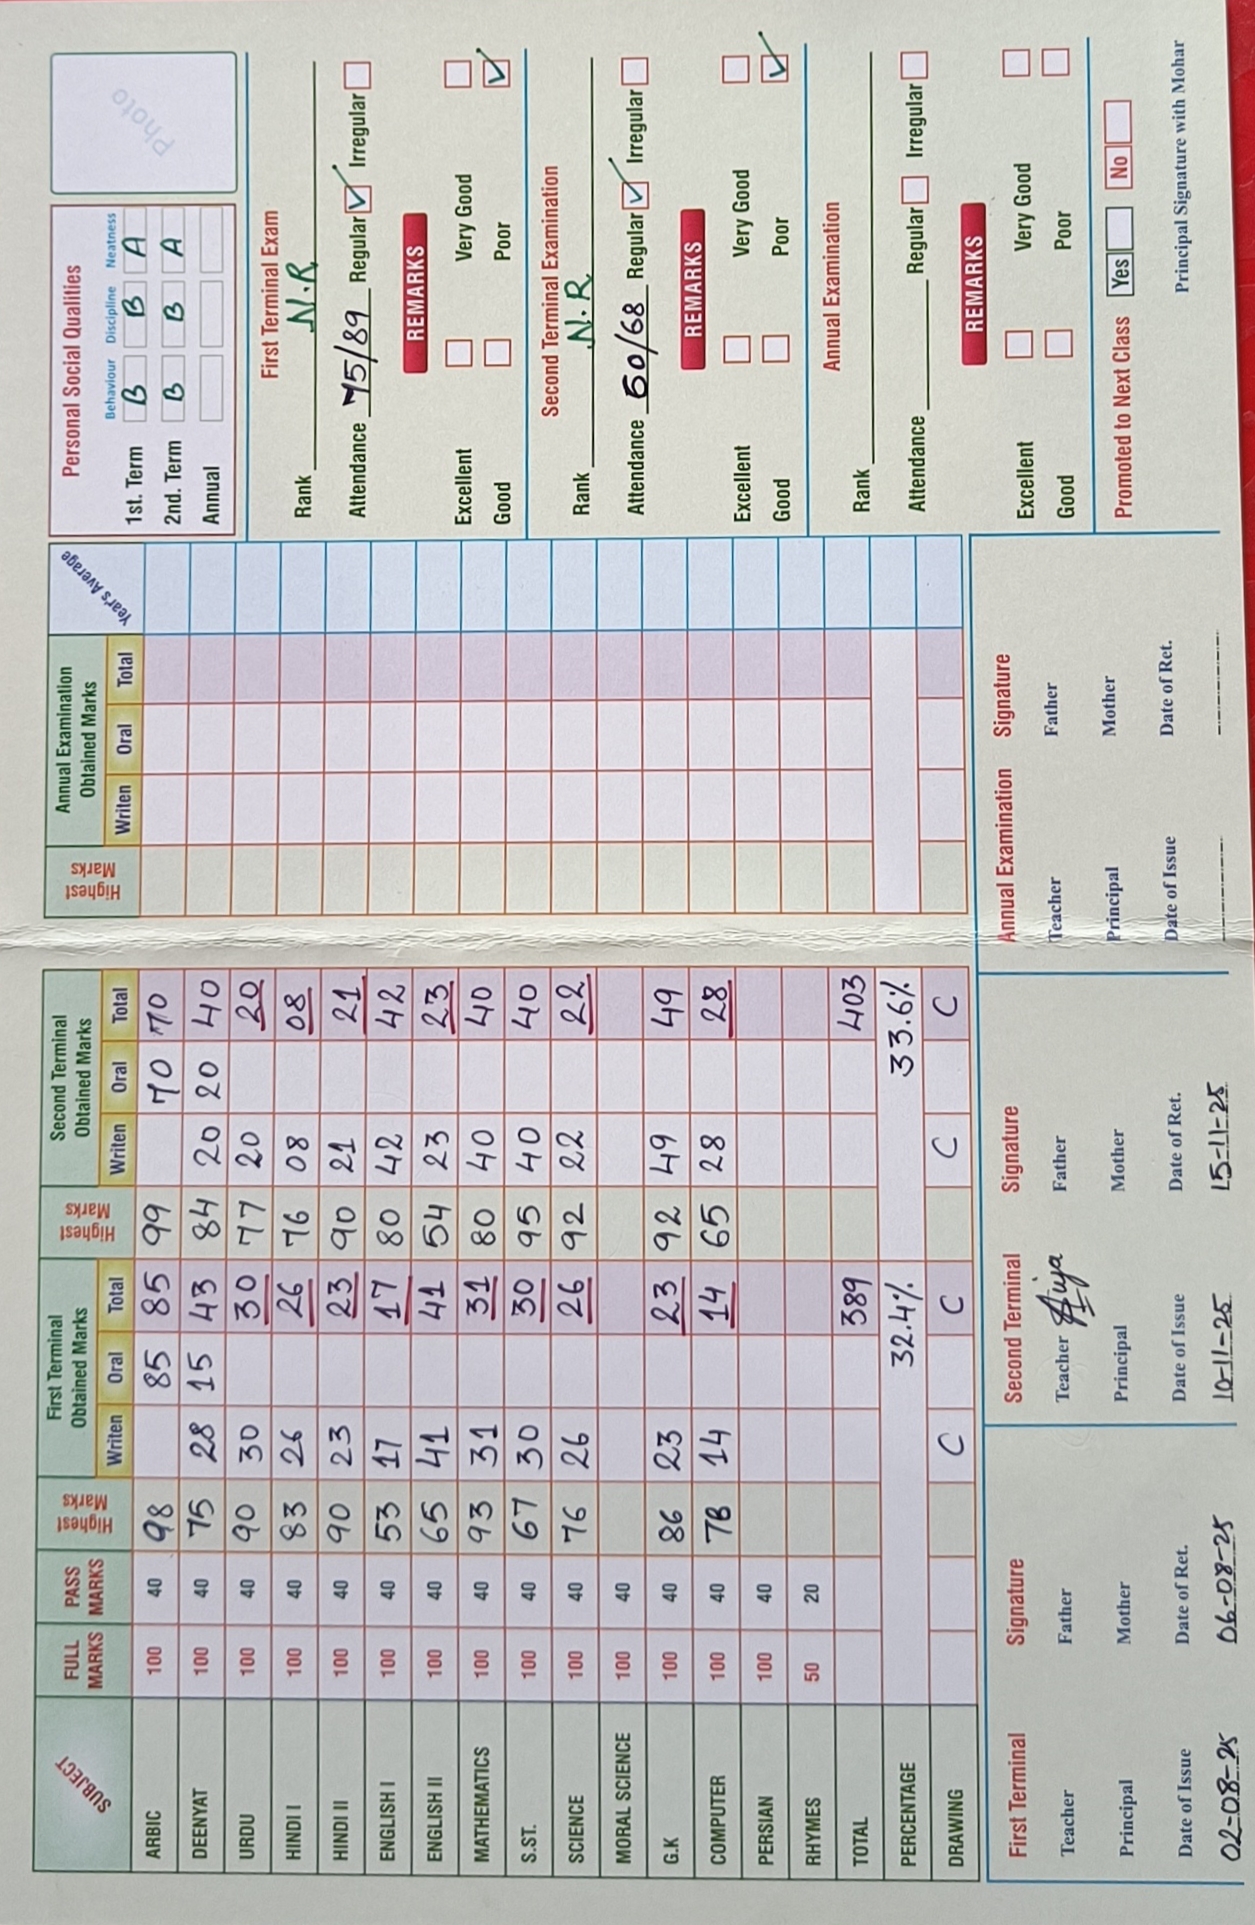 SUBJECT FULL MARKS PASS MARKS Highest Marks First Terminal Obtained Marks Highest Marks Second Terminal Obtained Marks Highest Marks Annual Examination Obtained Marks Year's Average
Writen Oral Total Writen Oral Total Writen Oral Total
ARBIC 100 40 98 85 85 99 70 70
DEENYAT 100 40 75 28 15 43 84 20 20 40
URDU 100 40 90 30 30 77 20 20
HINDI I 100 40 83 26 26 76 08 08
HINDI II 100 40 90 23 23 90 21 21
ENGLISH I 100 40 53 17 17 80 42 42
ENGLISH II 100 40 65 41 41 54 23 23
MATHEMATICS 100 40 93 31 31 80 40 40
S.ST. 100 40 67 30 30 95 40 40
SCIENCE 100 40 76 26 26 92 22 22
MORAL SCIENCE 100 40
G.K 100 40 86 23 23 92 49 49
COMPUTER 100 40 78 14 14 65 28 28
PERSIAN 100 40
RHYMES 50 20
TOTAL 389 403
PERCENTAGE 32.4% 33.6%
DRAWING C C C C
First Terminal Signature
Teacher Father
Principal Mother
Date of Issue Date of Ret.
02-08-25 06-08-25
Second Terminal Signature
Teacher Father
Principal Mother
Date of Issue Date of Ret.
10-11-25 15-11-25
Annual Examination Signature
Teacher Father
Principal Mother
Date of Issue Date of Ret.
Personal Social Qualities
Behaviour Discipline Neatness
1st. Term B B A
2nd. Term B B A
Annual
Photo
First Terminal Exam
Rank N.R
Attendance 75/89 Regular Irregular
REMARKS
Excellent Very Good
Good Poor
Second Terminal Examination
Rank N.R
Attendance 60/68 Regular Irregular
REMARKS
Excellent Very Good
Good Poor
Annual Examination
Rank
Attendance Regular Irregular
REMARKS
Excellent Very Good
Good Poor
Promoted to Next Class Yes No
Principal Signature with Mohar